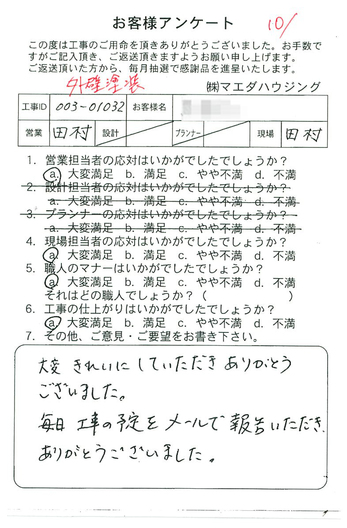 お客様アンケート 10/
この度は工事のご用命を頂きありがとうございました。お手数で
すがご記入頂き、ご返送頂きますようお願い申し上げます。
ご返送頂いた方から、毎月抽選で感謝品を進呈いたします。
外壁塗装 ㈱マエダハウジング
工事ID 003-01032 お客様名
営業 田村 設計 プランナー 現場 田村
1. 営業担当者の応対はいかがでしたでしょうか？
a. 大変満足 b. 満足 c. やや不満 d. 不満
2. 設計担当者の応対はいかがでしたでしょうか？
a. 大変満足 b. 満足 c. やや不満 d. 不満
3. プランナーの応対はいかがでしたでしょうか？
a. 大変満足 b. 満足 c. やや不満 d. 不満
4. 現場担当者の応対はいかがでしたでしょうか？
a. 大変満足 b. 満足 c. やや不満 d. 不満
5. 職人のマナーはいかがでしたでしょうか？
a. 大変満足 b. 満足 c. やや不満 d. 不満
それはどの職人でしょうか？（ ）
6. 工事の仕上がりはいかがでしたでしょうか？
a. 大変満足 b. 満足 c. やや不満 d. 不満
7. その他、ご意見・ご要望をお書き下さい。
大変 きれいに していただき ありがとう
ございました。
毎日 工事の予定を メールで 報告いただき
ありがとうございました。